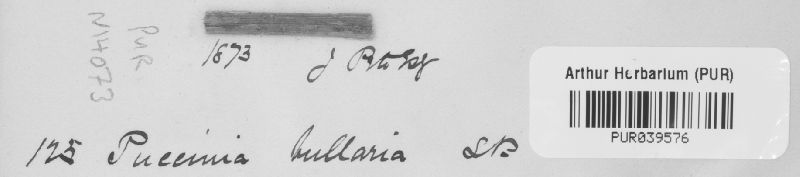 PUR
N14073
1873
J
Arthur Herbarium (PUR)
PUR039576
125 Puccinia bullaria